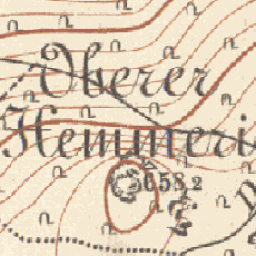 Oberer
Hemmeri
658.2